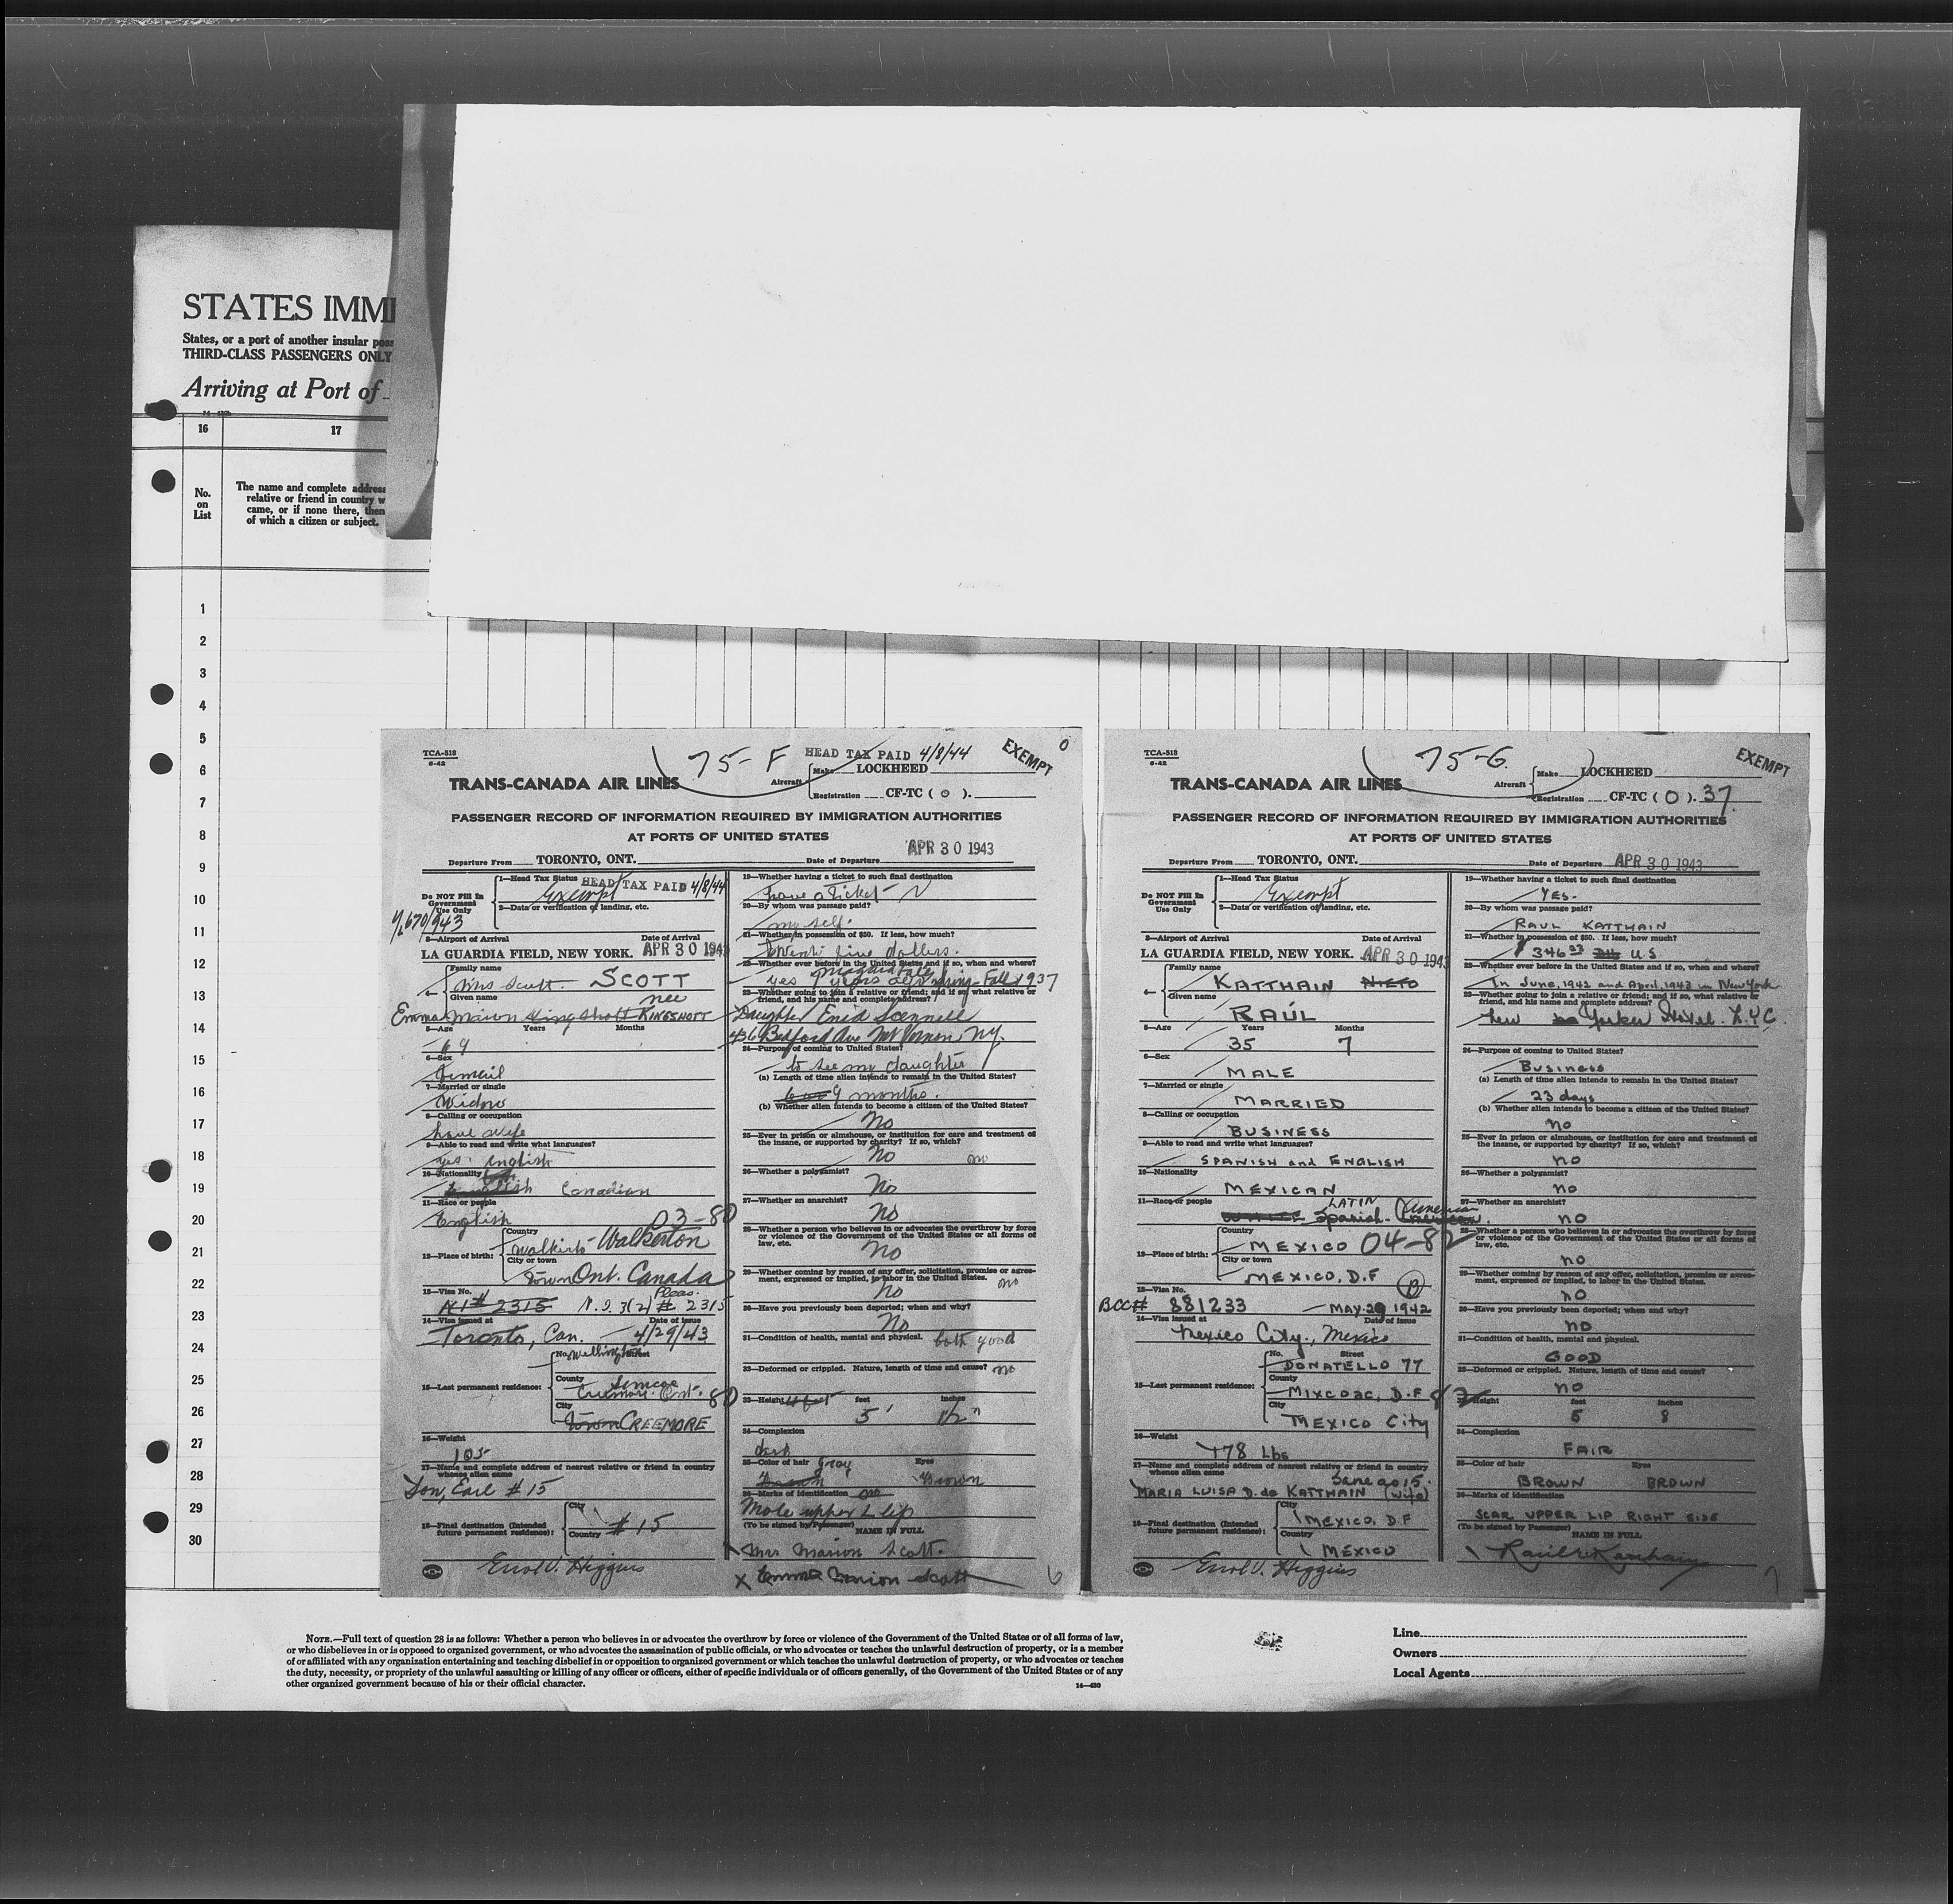 STATES IMMI
States, or a port of another insular poss
THIRD-CLASS PASSENGERS ONLY
Arriving at Port of
16
17
No.
on
List
The name and complete address
relative or friend in country w
came, or if none there, then
of which a citizen or subject.
1
2
3
4
5
6
7
8
9
10
11
12
13
14
15
16
17
18
19
20
21
22
23
24
25
26
27
28
29
30
TCA-518
6-42
75-F
HEAD TAX PAID 4/8/44
EXEMPT
0
TRANS-CANADA AIR LINES
Aircraft
Make LOCKHEED
Registration CF-TC ( 0 ).
PASSENGER RECORD OF INFORMATION REQUIRED BY IMMIGRATION AUTHORITIES
AT PORTS OF UNITED STATES
Departure From TORONTO, ONT.
Date of Departure APR 30 1943
Do NOT Fill In
Government
Use Only
1—Head Tax Status HEAD TAX PAID 4/8/44
Exempt
2—Data or verification of landing, etc.
3—Airport of Arrival Date of Arrival
LA GUARDIA FIELD, NEW YORK. APR 30 1943
4—
Family name
Mrs Scott. SCOTT
Given name nee
Emma Marion Kingshott KINGSHOTT
5—Age Years Months
69
6—Sex
Femail
7—Married or single
Widow
8—Calling or occupation
house wife
9—Able to read and write what languages?
yes. English
10—Nationality
English Canadian
11—Race or people
English 03-80
12—Place of birth:
Country
Walkerton
City or town
Town Ont. Canada
13—Visa No. Pleas.
2315 3(2) # 2315
14—Visa issued at Date of issue
Toronto, Can. 4/29/43
15—Last permanent residence:
No. Street
County
Simcoe
Creemore Ont. 80
City
Town CREEMORE
16—Weight
105
17—Name and complete address of nearest relative or friend in country
whence alien came
Son, Earl # 15
18—Final destination (Intended
future permanent residence):
City
# 15
Country
Errol V. Higgins
19—Whether having a ticket to such final destination
have a ticket
20—By whom was passage paid?
my self.
21—Whether in possession of $50. If less, how much?
dollars.
22—Whether ever before in the United States and if so, when and where?
yes 7 years ago Fall 1937
23—Whether going to join a relative or friend; and if so, what relative or
friend, and his name and complete address?
Daughter Enid Scennell
436 Bedford Ave Mt Vernon, N.Y.
24—Purpose of coming to United States?
to see my daughter
(a) Length of time alien intends to remain in the United States?
9 months.
(b) Whether alien intends to become a citizen of the United States?
No
25—Ever in prison or almshouse, or institution for care and treatment of
the insane, or supported by charity? If so, which?
No no
26—Whether a polygamist?
No
27—Whether an anarchist?
No
28—Whether a person who believes in or advocates the overthrow by force
or violence of the Government of the United States or all forms of
law, etc.
No
29—Whether coming by reason of any offer, solicitation, promise or agree-
ment, expressed or implied, to labor in the United States.
No no
30—Have you previously been deported; when and why?
No
31—Condition of health, mental and physical. both good
32—Deformed or crippled. Nature, length of time and cause? no
33—Height feet inches
5' 1½"
34—Complexion
dark
35—Color of hair Gray Eyes
Brown Brown
36—Marks of identification no
Mole upper L lip
(To be signed by Passenger) NAME IN FULL
Mrs Marion Scott.
X Emma Marion Scott
6
TCA-518
6-42
75-G.
EXEMPT
TRANS-CANADA AIR LINES
Aircraft
Make LOCKHEED
Registration CF-TC ( 0 ). 37.
PASSENGER RECORD OF INFORMATION REQUIRED BY IMMIGRATION AUTHORITIES
AT PORTS OF UNITED STATES
Departure From TORONTO, ONT.
Date of Departure APR 30 1943
Do NOT Fill In
Government
Use Only
1—Head Tax Status
Exempt
2—Data or verification of landing, etc.
3—Airport of Arrival Date of Arrival
LA GUARDIA FIELD, NEW YORK. APR 30 1943
4—
Family name
KATTHAIN NIETO
Given name
RAÚL
5—Age Years Months
35 7
6—Sex
MALE
7—Married or single
MARRIED
8—Calling or occupation
BUSINESS
9—Able to read and write what languages?
SPANISH and ENGLISH
10—Nationality
MEXICAN
11—Race or people LATIN American
WHITE Spanish-American.
12—Place of birth:
Country
MEXICO 04-82
City or town
MEXICO, D.F
13—Visa No. B
BCC# 881233 MAY-29 1942
14—Visa issued at Date of issue
Mexico City, Mexico
15—Last permanent residence:
No. Street
DONATELLO 77
County
MIXCOAC, D.F
City
MEXICO City
16—Weight
178 Lbs
17—Name and complete address of nearest relative or friend in country
whence alien came Same as 15.
MARIA LUISA D. de KATTHAIN (wife)
18—Final destination (Intended
future permanent residence):
City
MEXICO, D.F
Country
MEXICO
Errol V. Higgins
19—Whether having a ticket to such final destination
YES.
20—By whom was passage paid?
RAUL KATTHAIN
21—Whether in possession of $50. If less, how much?
$ 346 U.S
22—Whether ever before in the United States and if so, when and where?
In June, 1942 and April, 1943 in New York
23—Whether going to join a relative or friend; and if so, what relative or
friend, and his name and complete address?
New Yorker Hotel. N.Y.C.
24—Purpose of coming to United States?
Business
(a) Length of time alien intends to remain in the United States?
23 days
(b) Whether alien intends to become a citizen of the United States?
no
25—Ever in prison or almshouse, or institution for care and treatment of
the insane, or supported by charity? If so, which?
no
26—Whether a polygamist?
no
27—Whether an anarchist?
no
28—Whether a person who believes in or advocates the overthrow by force
or violence of the Government of the United States or all forms of
law, etc.
no
29—Whether coming by reason of any offer, solicitation, promise or agree-
ment, expressed or implied, to labor in the United States.
no
30—Have you previously been deported; when and why?
no
31—Condition of health, mental and physical.
GOOD
32—Deformed or crippled. Nature, length of time and cause?
no
33—Height feet inches
5 8
34—Complexion
FAIR
35—Color of hair Eyes
BROWN BROWN
36—Marks of identification
SCAR UPPER LIP RIGHT SIDE
(To be signed by Passenger) NAME IN FULL
7
NOTE.—Full text of question 28 is as follows: Whether a person who believes in or advocates the overthrow by force or violence of the Government of the United States or of all forms of law,
or who disbelieves in or is opposed to organized government, or who advocates the assassination of public officials, or who advocates or teaches the unlawful destruction of property, or is a member
of or affiliated with any organization entertaining and teaching disbelief in or opposition to organized government or which teaches the unlawful destruction of property, or who advocates or teaches
the duty, necessity, or propriety of the unlawful assaulting or killing of any officer or officers, either of specific individuals or of officers generally, of the Government of the United States or of any
other organized government because of his or their official character.
14—430
Line
Owners
Local Agents